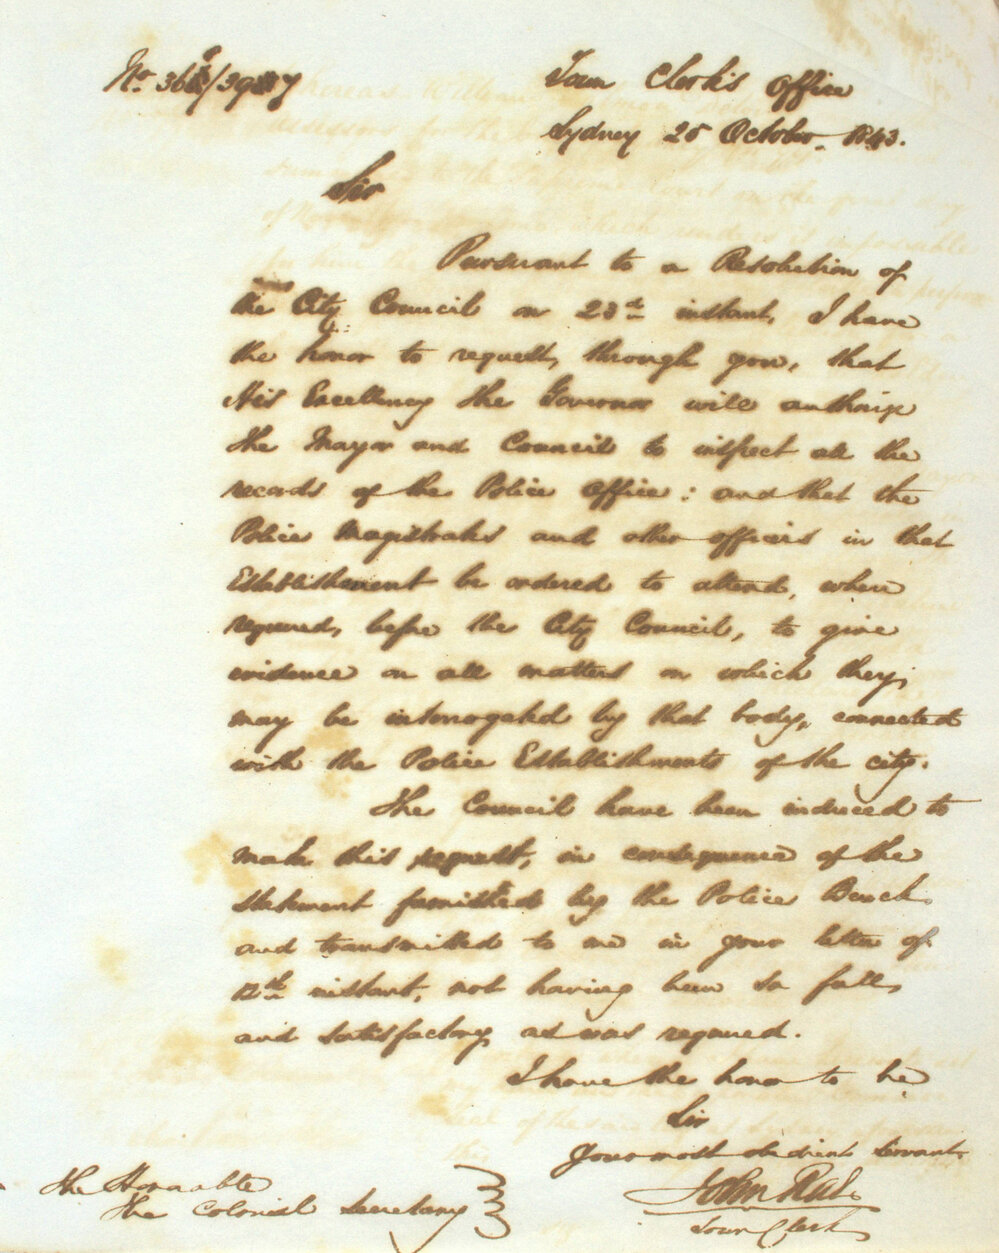 Town Clerk's Office
Sydney 25 October 1843.
Sir
Pursuant to a Resolution of
the City Council on 23rd instant, I have
the honor to request, through you, that
His Excellency the Governor will authorize
the Mayor and Council to inspect all the
records of the Police Office: and that the
Police Magistrates and other officers in that
Establishment be ordered to attend, when
required, before the City Council, to give
evidence on all matters on which they
may be interrogated by that body, connected
with the Police Establishments of the city.
The Council have been induced to
make this request, in consequence of the
statement furnished by the Police Bench
and transmitted to me in your letter of
12th instant, not having been so full
and satisfactory as was required.
I have the honor to be
Sir
Your most obedient Servant
John Rae
Town Clerk
The Honorable
The Colonial Secretary